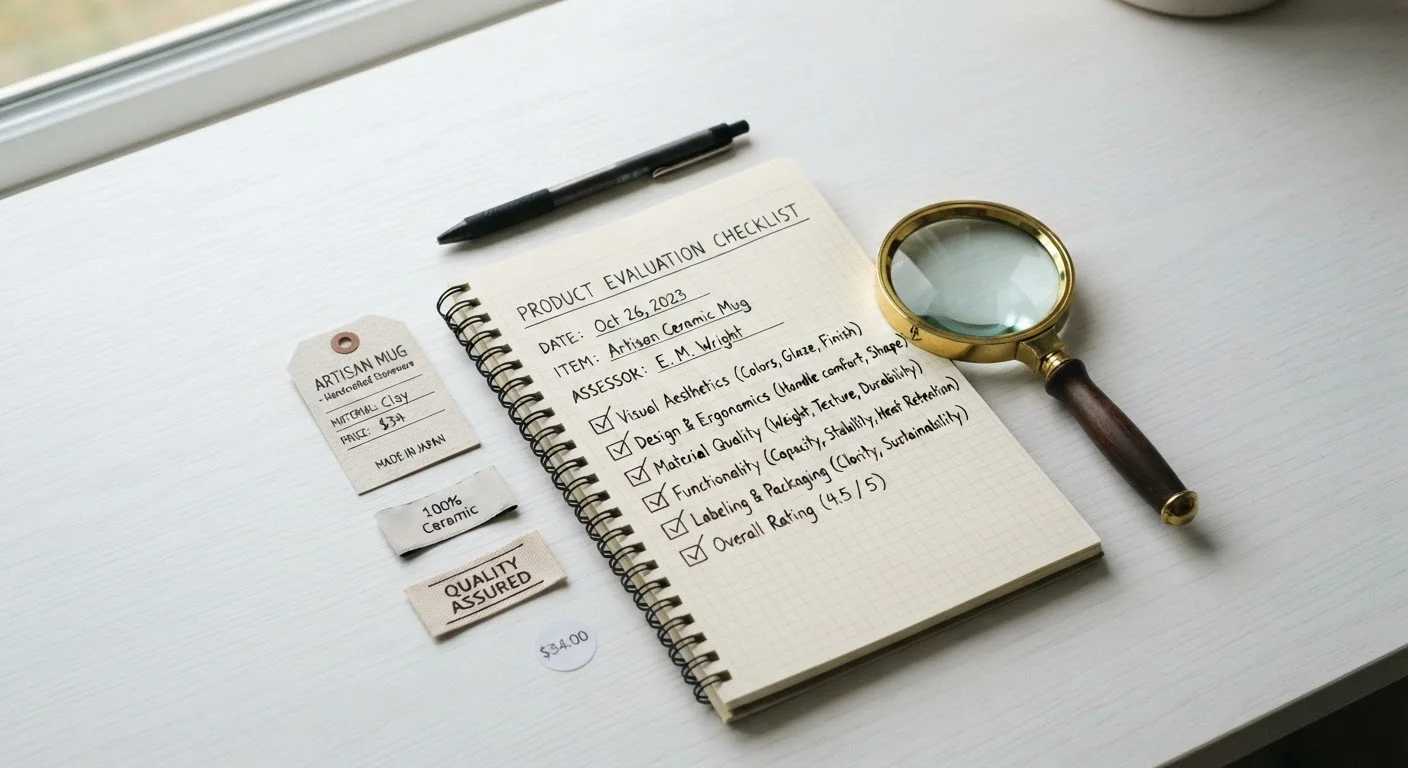 PRODUCT EVALUATION CHECKLIST
DATE: Oct 26, 2023
ITEM: Artisan Ceramic Mug
ASSESSOR: E. M. Wright
Visual Aesthetics (Colors, Glaze, Finish)
Design & Ergonomics (Handle comfort, Shape)
Material Quality (Weight, Texture, Durability)
Functionality (Capacity, Stability, Heat Retention)
Labeling & Packaging (Clarity, Sustainability)
Overall Rating (4.5 / 5)
ARTISAN MUG
- Handcrafted
MATERIAL: Clay
PRICE: $34
MADE IN JAPAN
100%
Ceramic
QUALITY
ASSURED
$34.00